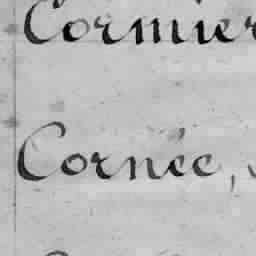 Cormier
Cornée,